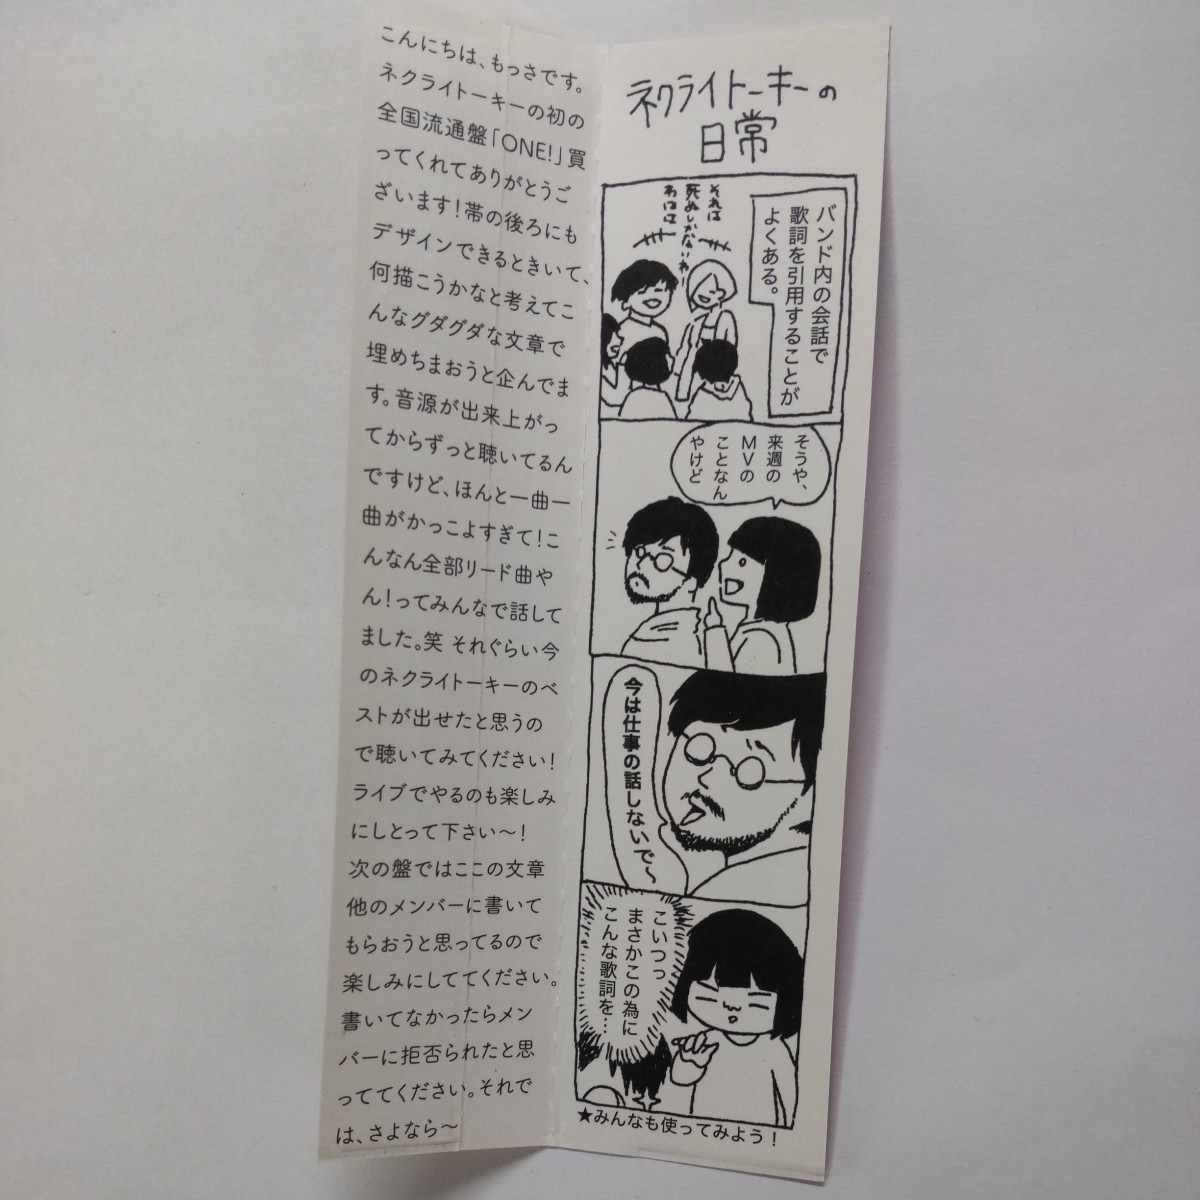 こんにちは、もっさです。
ネクライトーキーの初の
全国流通盤「ONE!」買
ってくれてありがとうご
ざいます！帯の後ろにも
デザインできるときいて、
何描こうかなと考えてこ
んなグダグダな文章で
埋めちまおうと企んでま
す。音源が出来上がっ
てからずっと聴いてるん
ですけど、ほんと一曲一
曲がかっこよすぎて！こ
んなん全部リード曲や
ん！ってみんなで話して
ました。笑 それぐらい今
のネクライトーキーのベ
ストが出せたと思うの
で聴いてみてください！
ライブでやるのも楽しみ
にしとって下さい〜！
次の盤ではここの文章
他のメンバーに書いて
もらおうと思ってるので
楽しみにしててください。
書いてなかったらメン
バーに拒否られたと思
っててください。それで
は、さよなら〜
ネクライトーキーの
日常
バンド内の会話で
歌詞を引用することが
よくある。
それは
死ぬしかないわ
わはは
そうや、
来週の
MVの
ことなん
やけど
今は仕事の話しないで〜
こいつっ
まさかこの為に
こんな歌詞を…
★みんなも使ってみよう！